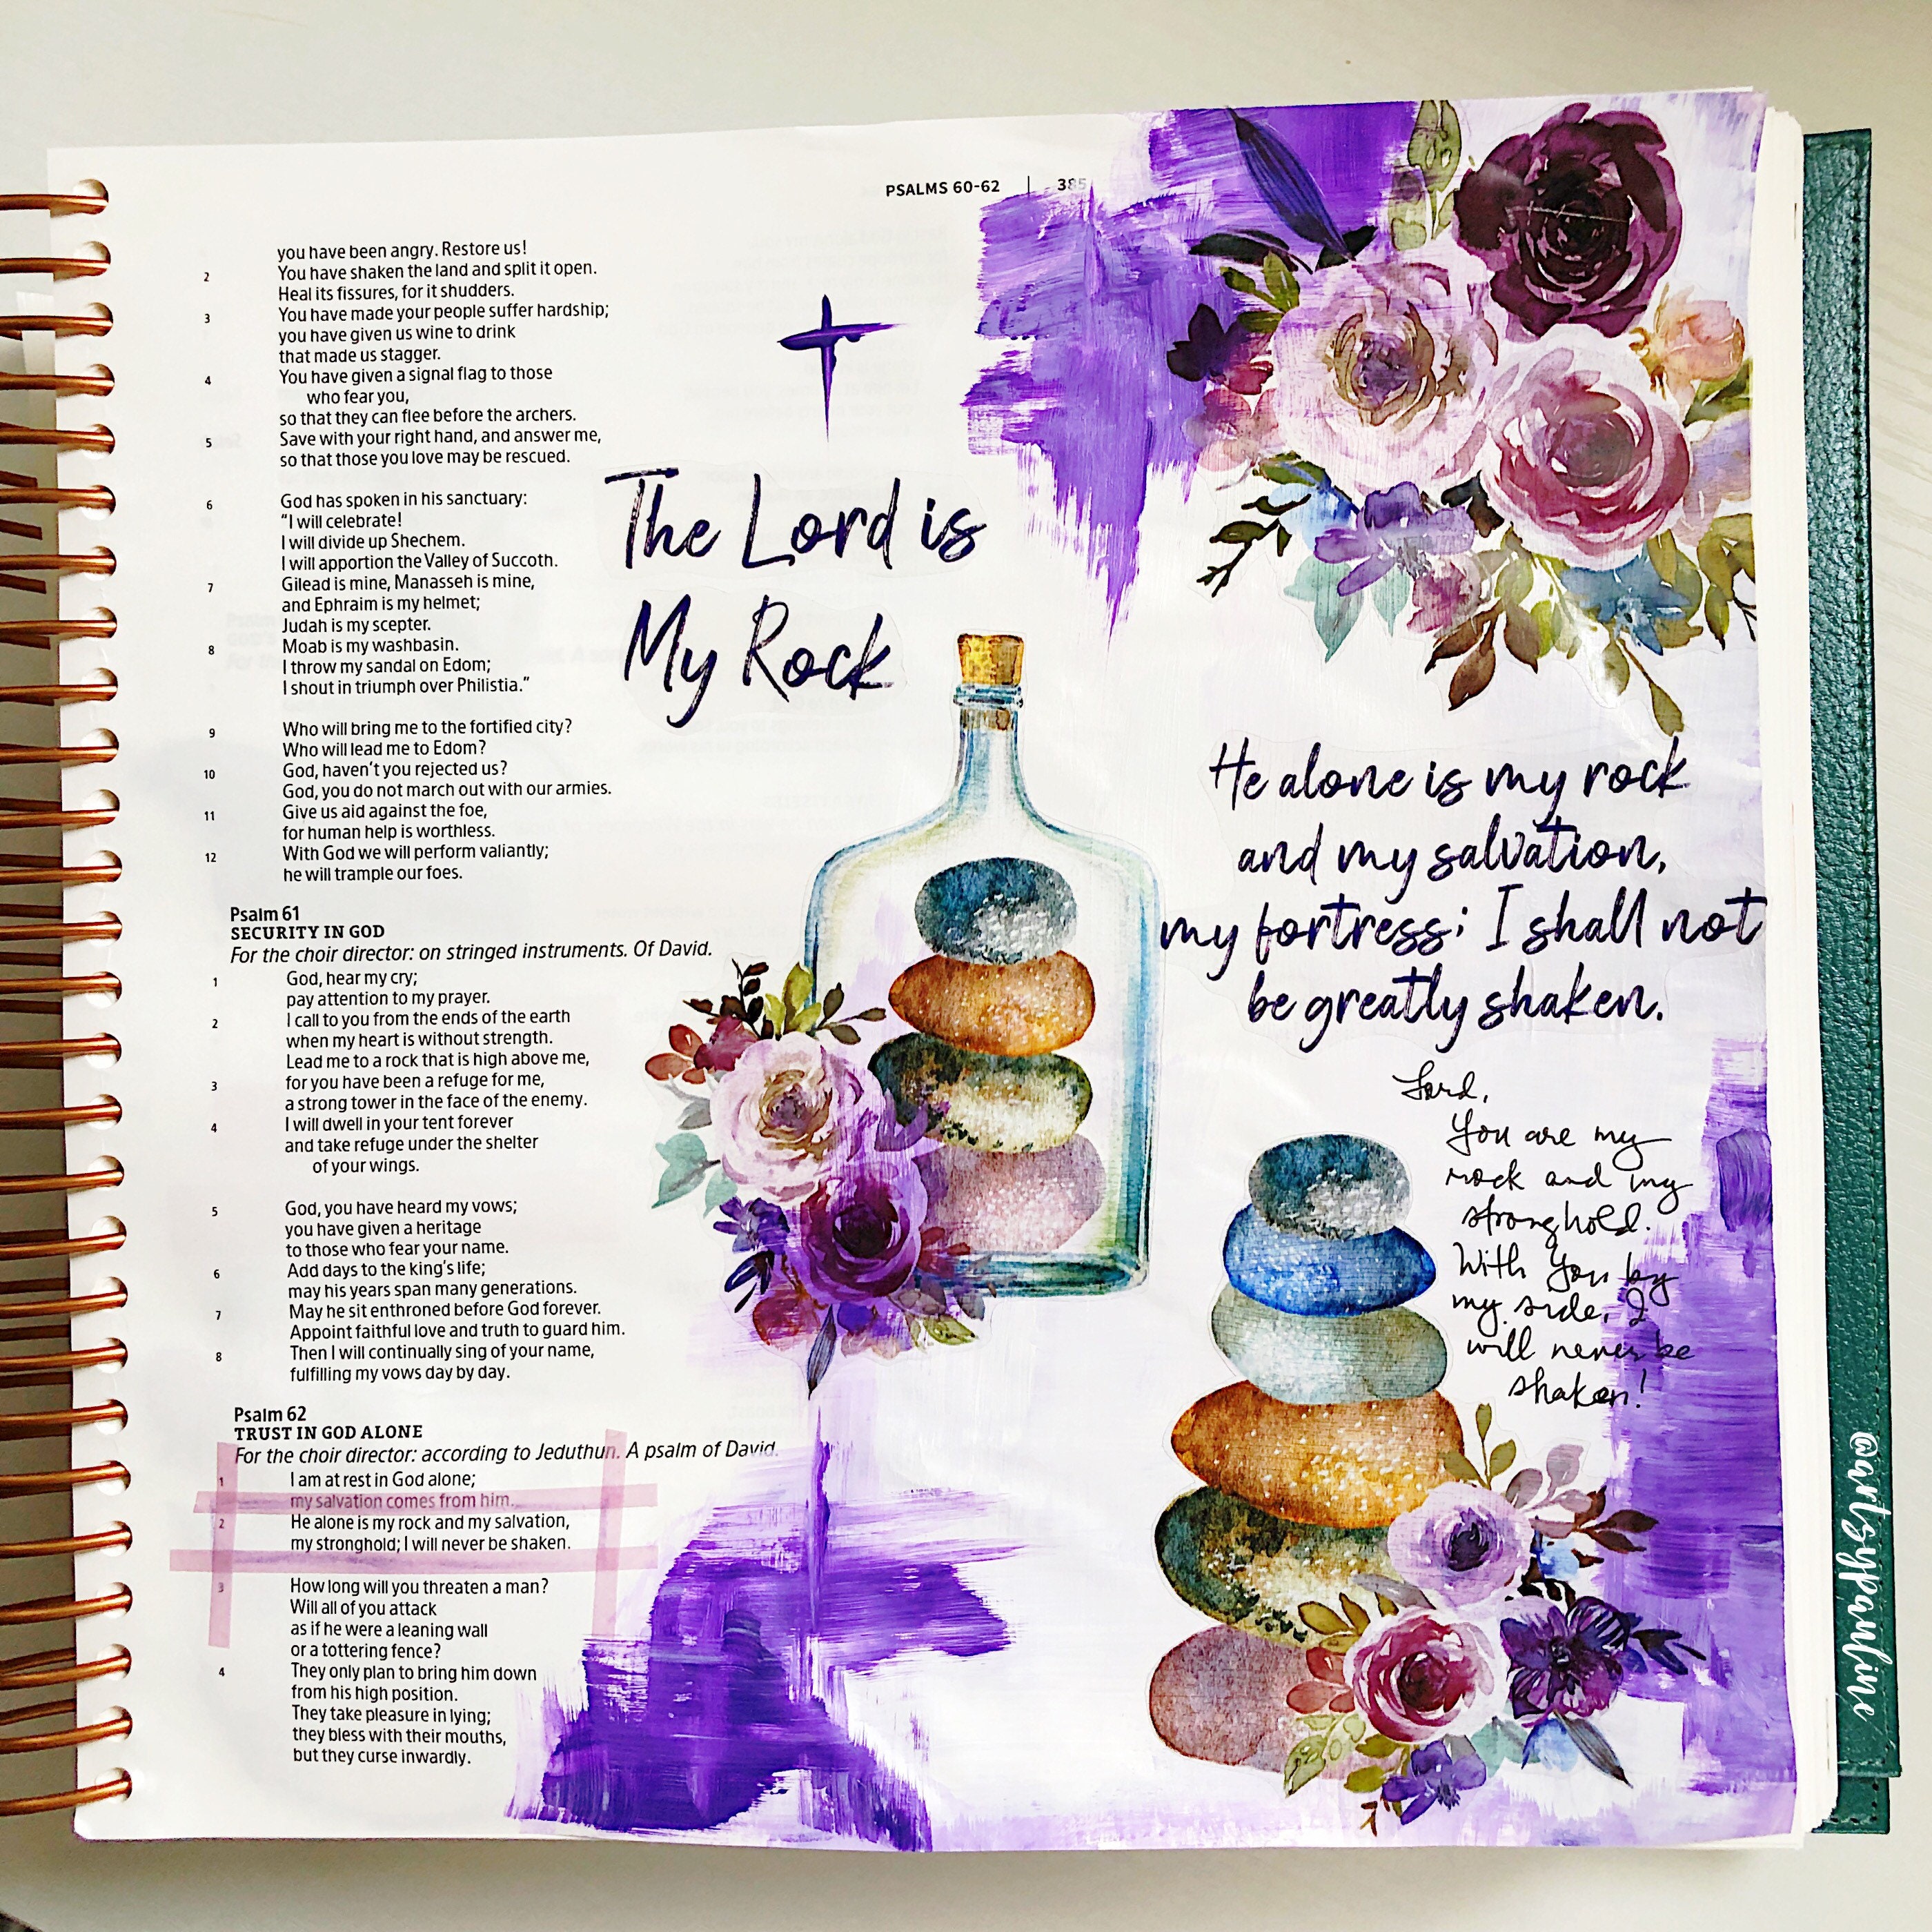 PSALMS 60-62 | 385
you have been angry. Restore us!
2 You have shaken the land and split it open.
Heal its fissures, for it shudders.
3 You have made your people suffer hardship;
you have given us wine to drink
that made us stagger.
4 You have given a signal flag to those
who fear you,
so that they can flee before the archers.
5 Save with your right hand, and answer me,
so that those you love may be rescued.
6 God has spoken in his sanctuary:
“I will celebrate!
I will divide up Shechem.
I will apportion the Valley of Succoth.
7 Gilead is mine, Manasseh is mine,
and Ephraim is my helmet;
Judah is my scepter.
8 Moab is my washbasin.
I throw my sandal on Edom;
I shout in triumph over Philistia.”
9 Who will bring me to the fortified city?
Who will lead me to Edom?
10 God, haven’t you rejected us?
God, you do not march out with our armies.
11 Give us aid against the foe,
for human help is worthless.
12 With God we will perform valiantly;
he will trample our foes.
Psalm 61
SECURITY IN GOD
For the choir director: on stringed instruments. Of David.
1 God, hear my cry;
pay attention to my prayer.
2 I call to you from the ends of the earth
when my heart is without strength.
Lead me to a rock that is high above me,
3 for you have been a refuge for me,
a strong tower in the face of the enemy.
4 I will dwell in your tent forever
and take refuge under the shelter
of your wings.
5 God, you have heard my vows;
you have given a heritage
to those who fear your name.
6 Add days to the king’s life;
may his years span many generations.
7 May he sit enthroned before God forever.
Appoint faithful love and truth to guard him.
8 Then I will continually sing of your name,
fulfilling my vows day by day.
Psalm 62
TRUST IN GOD ALONE
For the choir director: according to Jeduthun. A psalm of David.
1 I am at rest in God alone;
my salvation comes from him.
2 He alone is my rock and my salvation,
my stronghold; I will never be shaken.
3 How long will you threaten a man?
Will all of you attack
as if he were a leaning wall
or a tottering fence?
4 They only plan to bring him down
from his high position.
They take pleasure in lying;
they bless with their mouths,
but they curse inwardly.
The Lord is
My Rock
He alone is my rock
and my salvation,
my fortress; I shall not
be greatly shaken.
Lord,
You are my
rock and my
stronghold.
With You by
my side, I
will never be
shaken!
@artsypauline